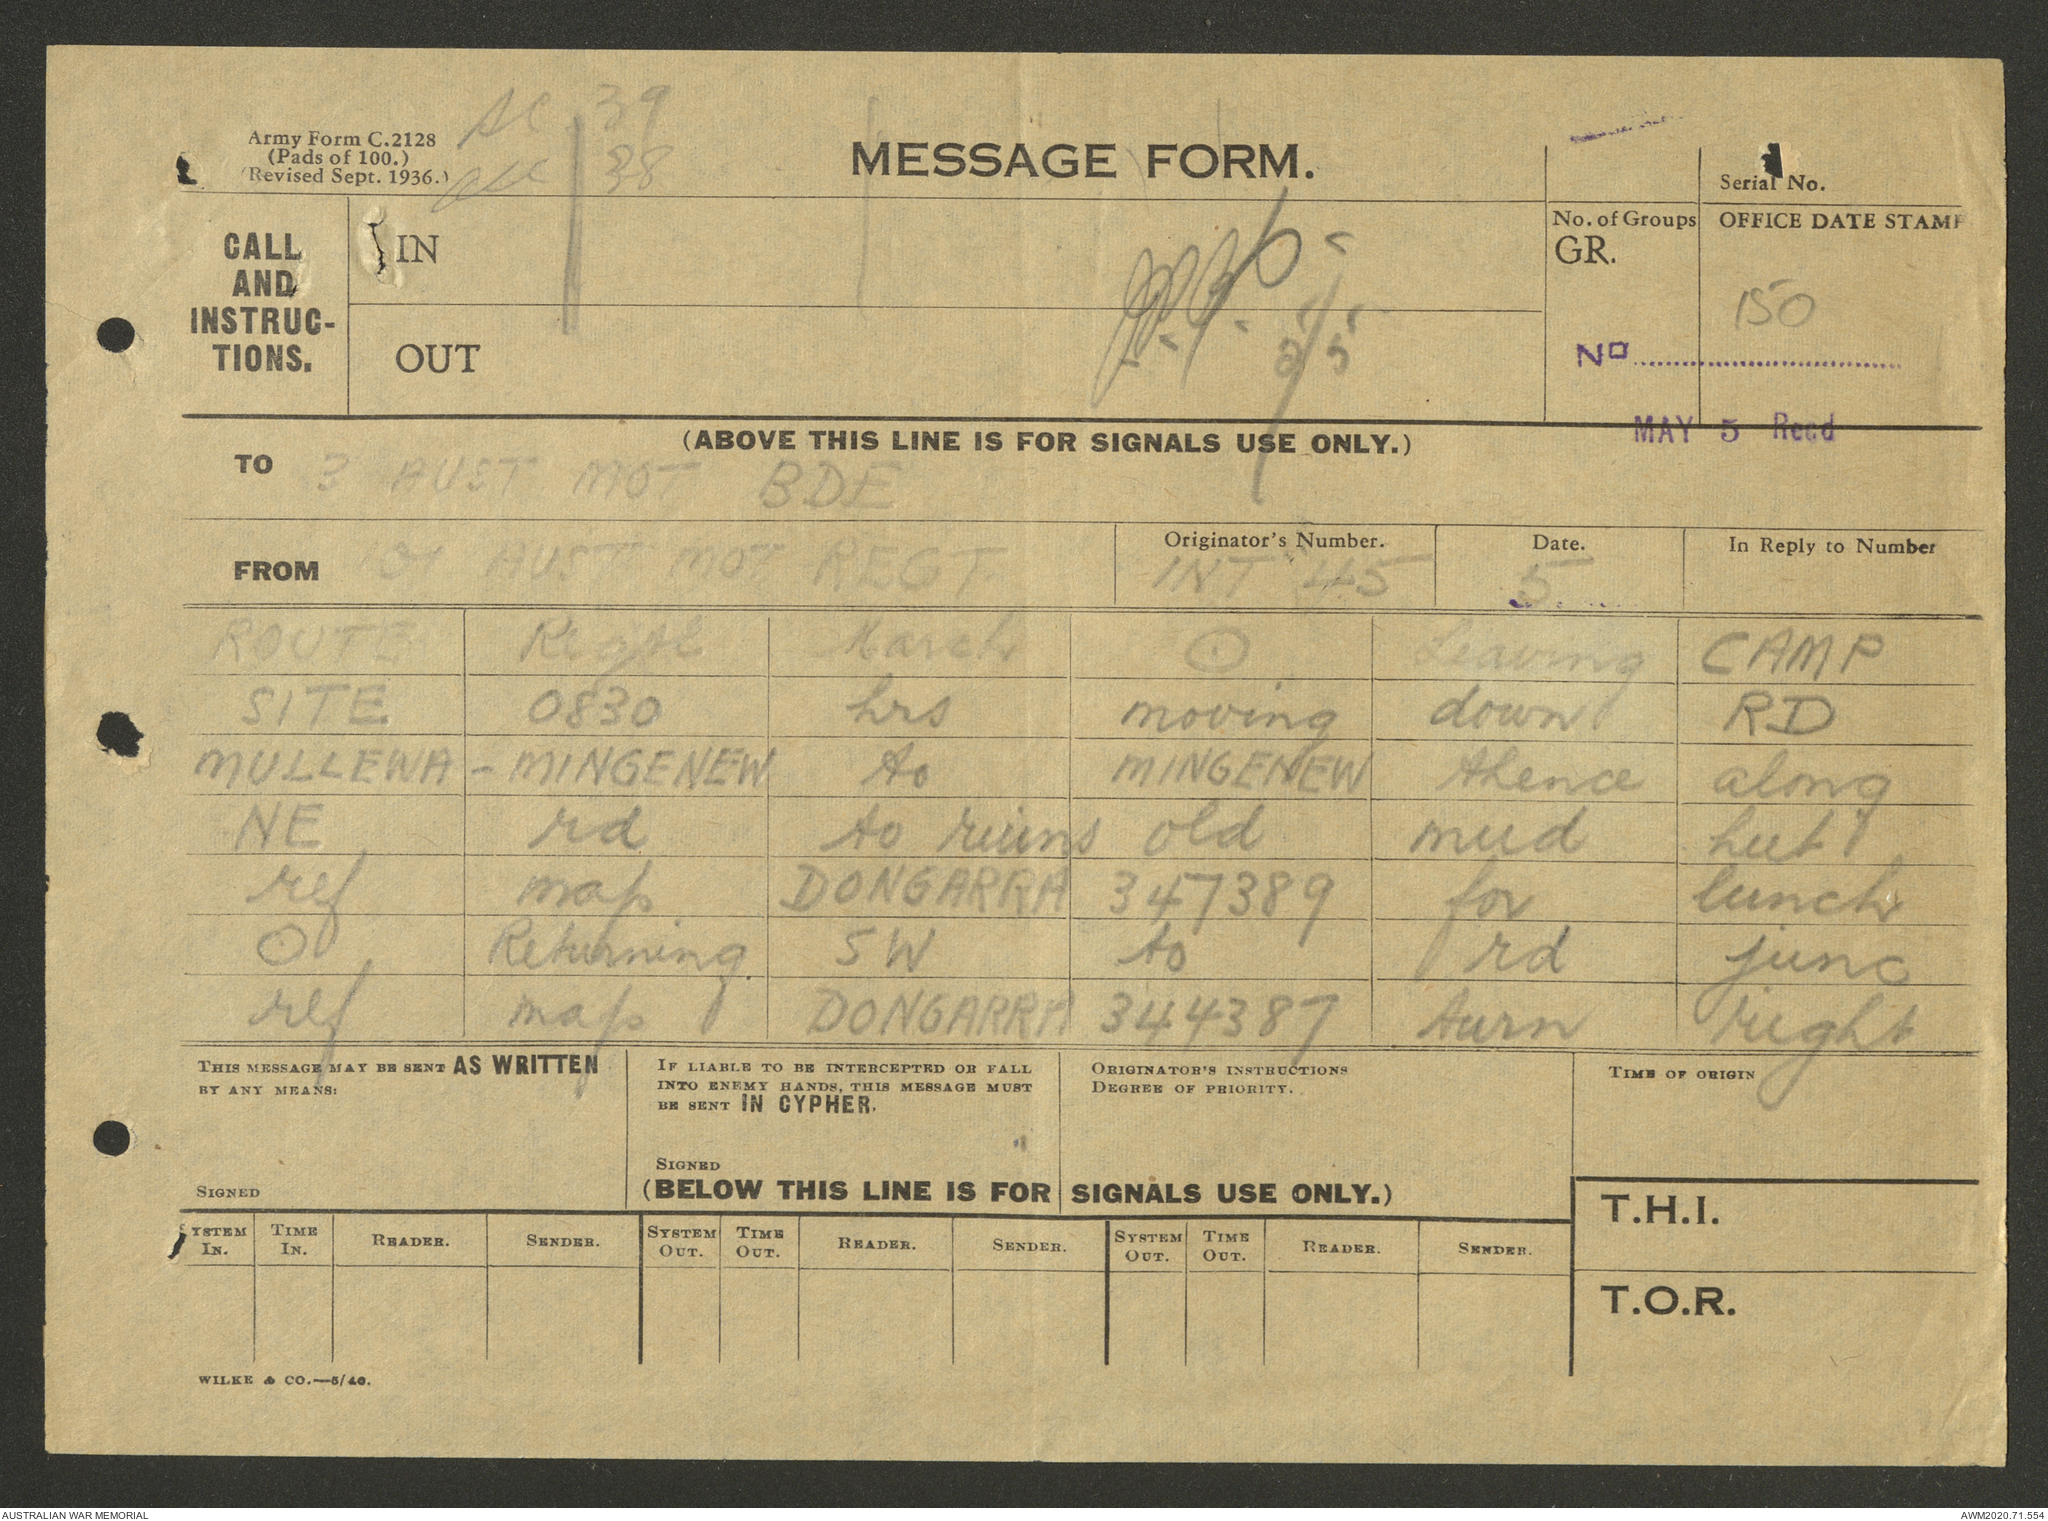 39
38
Army Form C.2128
(Pads of 100.)
(Revised Sept. 1936.)
MESSAGE FORM.
Serial No.
CALL
AND
INSTRUC-
TIONS.
IN
OUT
5/5
No. of Groups
GR.
OFFICE DATE STAMP
150
No
MAY 5 Recd
(ABOVE THIS LINE IS FOR SIGNALS USE ONLY.)
TO 3 AUST MOT BDE
FROM 101 AUST MOT REGT
Originator's Number.
INT 45
Date.
5
In Reply to Number
ROUTE Regtl March ⊙ Leaving CAMP
SITE 0830 hrs moving down RD
MULLEWA - MINGENEW to MINGENEW thence along
NE rd to ruins old mud hut
ref map DONGARRA 347389 for lunch
⊙ Returning SW to rd junc
ref map DONGARRA 344387 turn right
THIS MESSAGE MAY BE SENT AS WRITTEN
BY ANY MEANS:
SIGNED
IF LIABLE TO BE INTERCEPTED OR FALL
INTO ENEMY HANDS, THIS MESSAGE MUST
BE SENT IN CYPHER.
SIGNED
ORIGINATOR'S INSTRUCTIONS
DEGREE OF PRIORITY.
TIME OF ORIGIN
(BELOW THIS LINE IS FOR SIGNALS USE ONLY.)
T.H.I.
SYSTEM IN. TIME IN. READER. SENDER. SYSTEM OUT. TIME OUT. READER. SENDER. SYSTEM OUT. TIME OUT. READER. SENDER.
T.O.R.
WILKE & CO.—5/40.
AUSTRALIAN WAR MEMORIAL
AWM2020.71.554